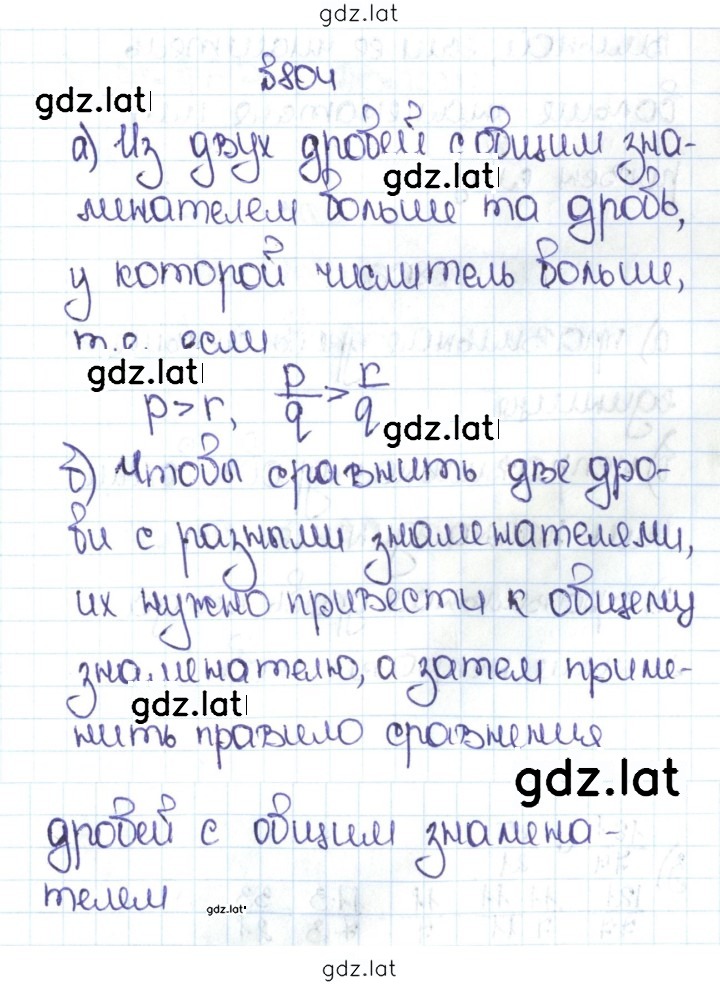 gdz.lat
№804
gdz.lat
а) Из двух дробей с общим зна-
gdz.lat
менателем больше та дробь,
у которой числитель больше,
т.е. если
gdz.lat
p > r, p/q > r/q
gdz.lat
б) Чтобы сравнить две дро-
би с разными знаменателями,
их нужно привести к общему
знаменателю, а затем приме-
gdz.lat
нить правило сравнения
gdz.lat
дробей с общим знамена-
телем
gdz.lat
gdz.lat